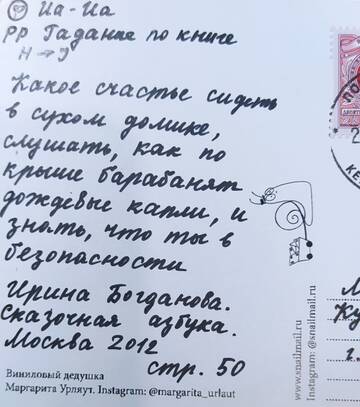 Иа-Иа
РР Гадание по книге
Н → Э
Какое счастье сидеть
в сухом домике,
слушать, как по
крыше барабанят
дождевые капли, и
знать, что ты в
безопасности
Ирина Богданова.
Сказочная азбука.
Москва 2012
стр. 50
Виниловый дедушка
Маргарита Урляут. Instagram: @margarita_urlaut
www.snailmail.ru
Instagram: @snailmail.ru